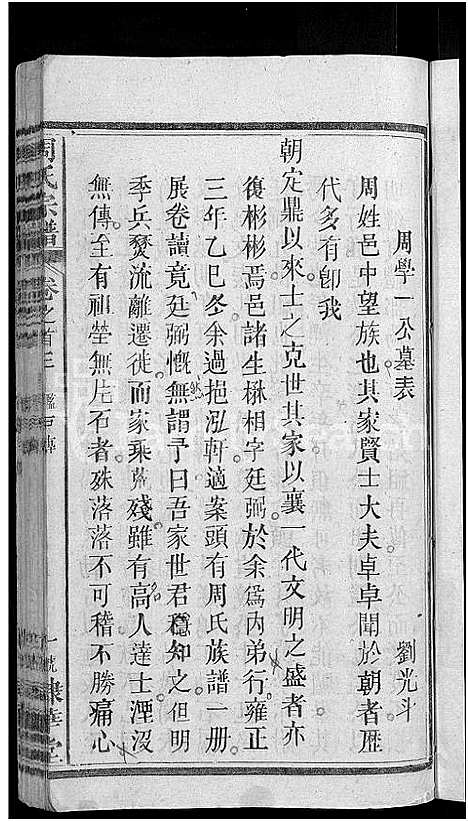 周學一公墓表
劉光斗
周姓邑中望族也其家賢士大夫卓卓聞於朝者歷
代多有卽我
朝定鼎以來士之克世其家以襄一代文明之盛者亦
復彬彬焉邑諸生楙相字廷弼於余爲內弟行雍正
三年乙巳冬余過挹泓軒適案頭有周氏族譜一册
展卷讀竟廷弼慨然無謂予曰吾家世君穩知之但明
季兵燹流離遷徙而家乘荒殘雖有高人達士湮沒
無傳至有祖塋無片石者殊落落不可稽不勝痛心
周氏宗譜
卷之首三
一號